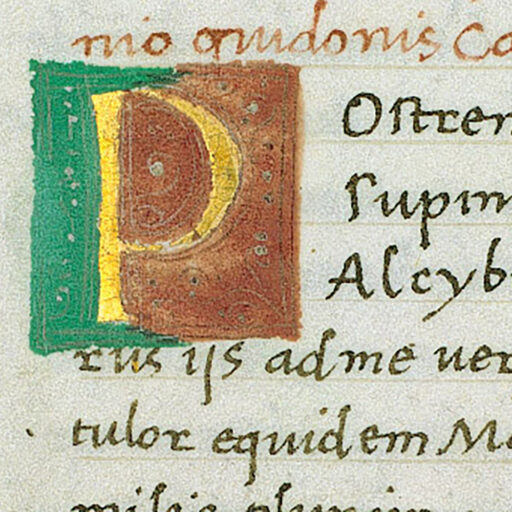 nio guidonis Co
P Ostren
Supin
Alcyb
rus ijs ad me uer
tulor equidem Ma